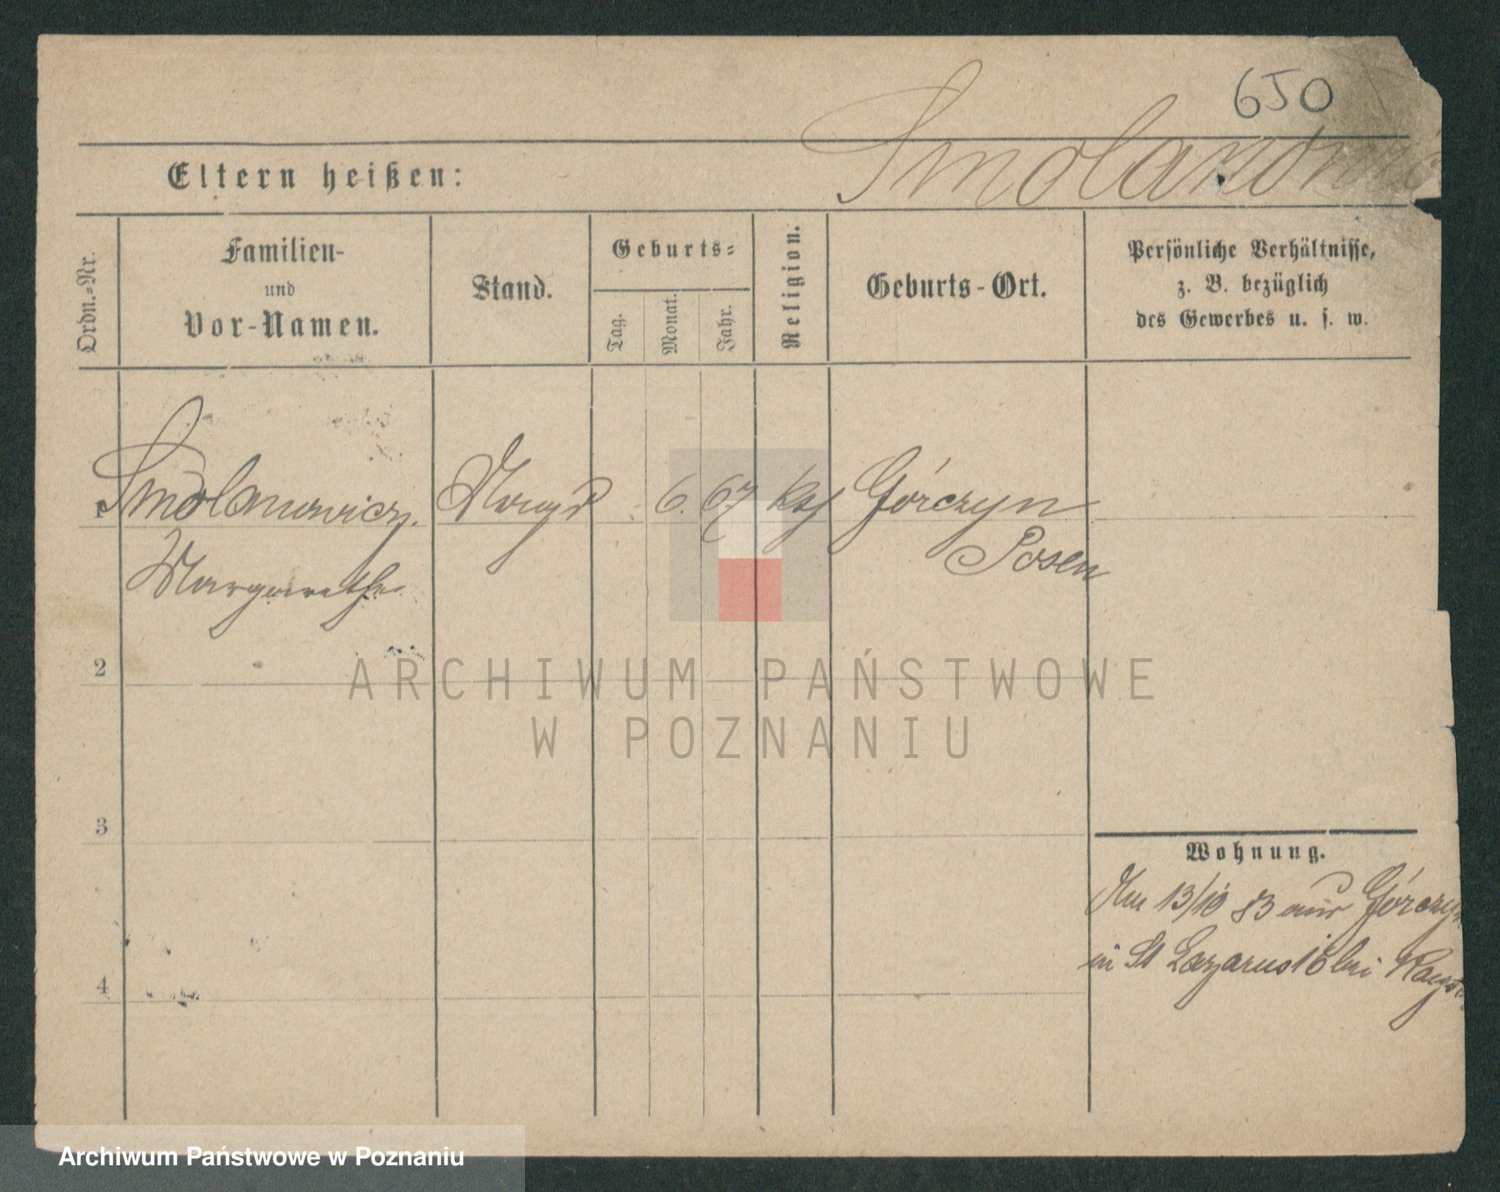 650
Smolanowic
Eltern heißen:
Ordn.-Nr.
Familien-
und
Vor-Namen.
Stand.
Geburts-
Tag.
Monat.
Jahr.
Religion.
Geburts-Ort.
Persönliche Verhältnisse,
z. B. bezüglich
des Gewerbes u. s. w.
1 Smolanowicz. Magd 6. 67 kth Górczyn
Margarethe Posen
2
3
4
Wohnung.
13/10 83 aus Górczyn
in St Lazarus 16 bei
ARCHIWUM PAŃSTWOWE
W POZNANIU
Archiwum Państwowe w Poznaniu